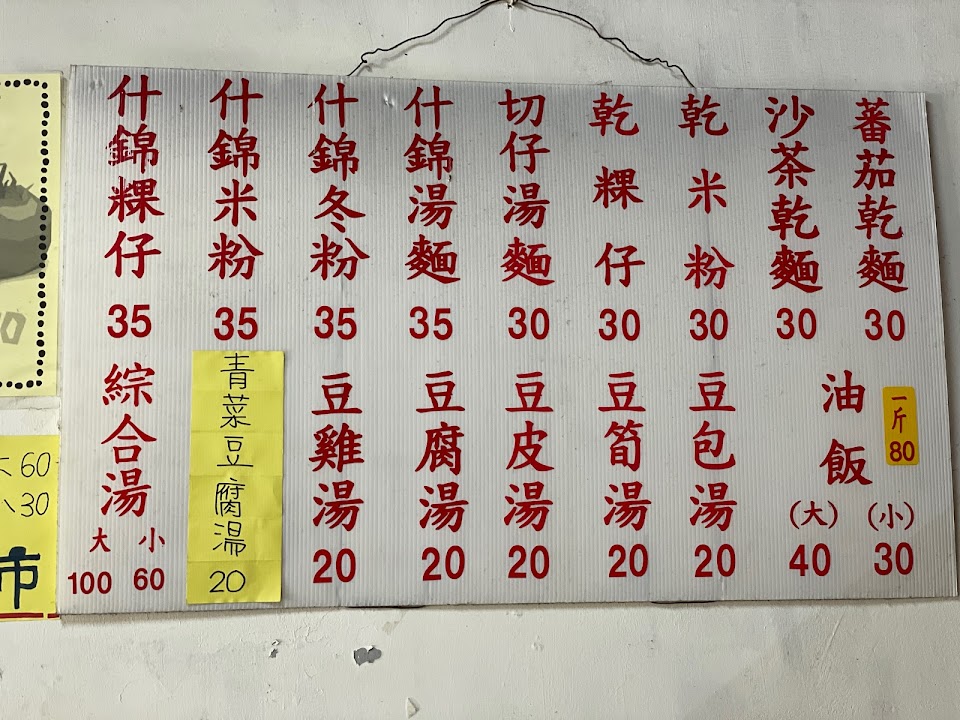 蕃茄乾麵 30
沙茶乾麵 30
乾米粉 30
乾粿仔 30
切仔湯麵 30
什錦湯麵 35
什錦冬粉 35
什錦米粉 35
什錦粿仔 35
油飯 (大) 40 (小) 30
一斤 80
豆包湯 20
豆筍湯 20
豆皮湯 20
豆腐湯 20
豆雞湯 20
青菜豆腐湯 20
綜合湯 大 100 小 60
60
30
市